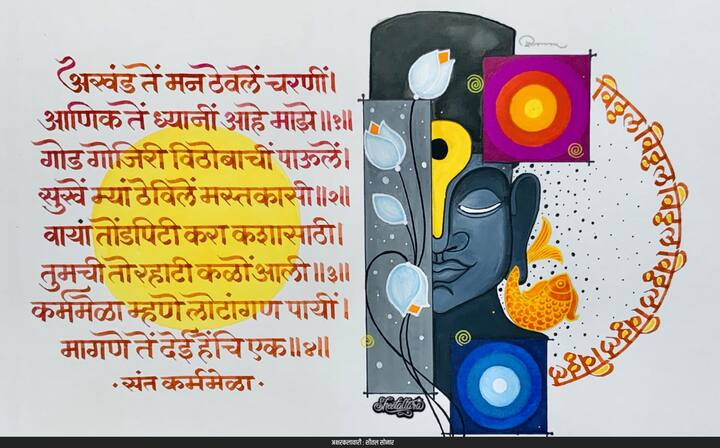 अखंड तें मन ठेवलें चरणीं।
आणिक तें ध्यानीं आहे माझे॥१॥
गोड गोजिरी विठोबाचीं पाऊलें।
सुखें म्यां ठेविलें मस्तकासी॥२॥
वायां तोंडपिटी करा कशासाठी।
तुमची तो रहाटी कळों आली॥३॥
कर्ममेळा म्हणे लोटांगण पायीं।
मागणें तें देई हेंचि एक॥४॥
· संत कर्ममेळा ·
विठ्ठल विठ्ठल विठ्ठल विठ्ठल विठ्ठल विठ्ठल
अक्षरकलावारी : शीतल सोनार